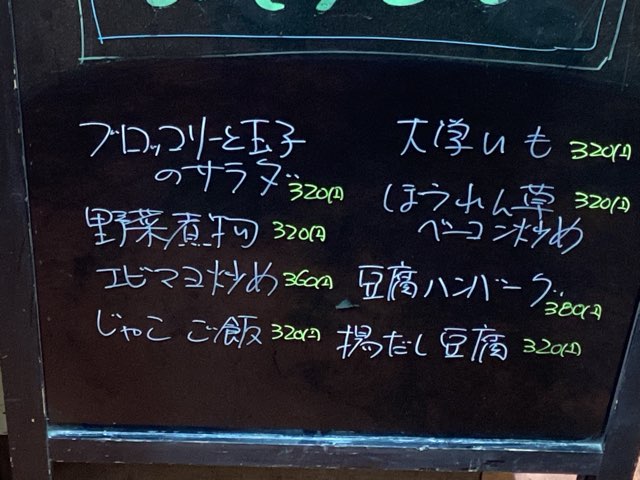 ブロッコリーと玉子
のサラダ 320(1)
野菜煮物 320(1)
エビマヨ炒め 360(1)
じゃこご飯 320(1)
大学いも 320(1)
ほうれん草 320(1)
ベーコン炒め
豆腐ハンバーグ
380(1)
揚だし豆腐 320(1)